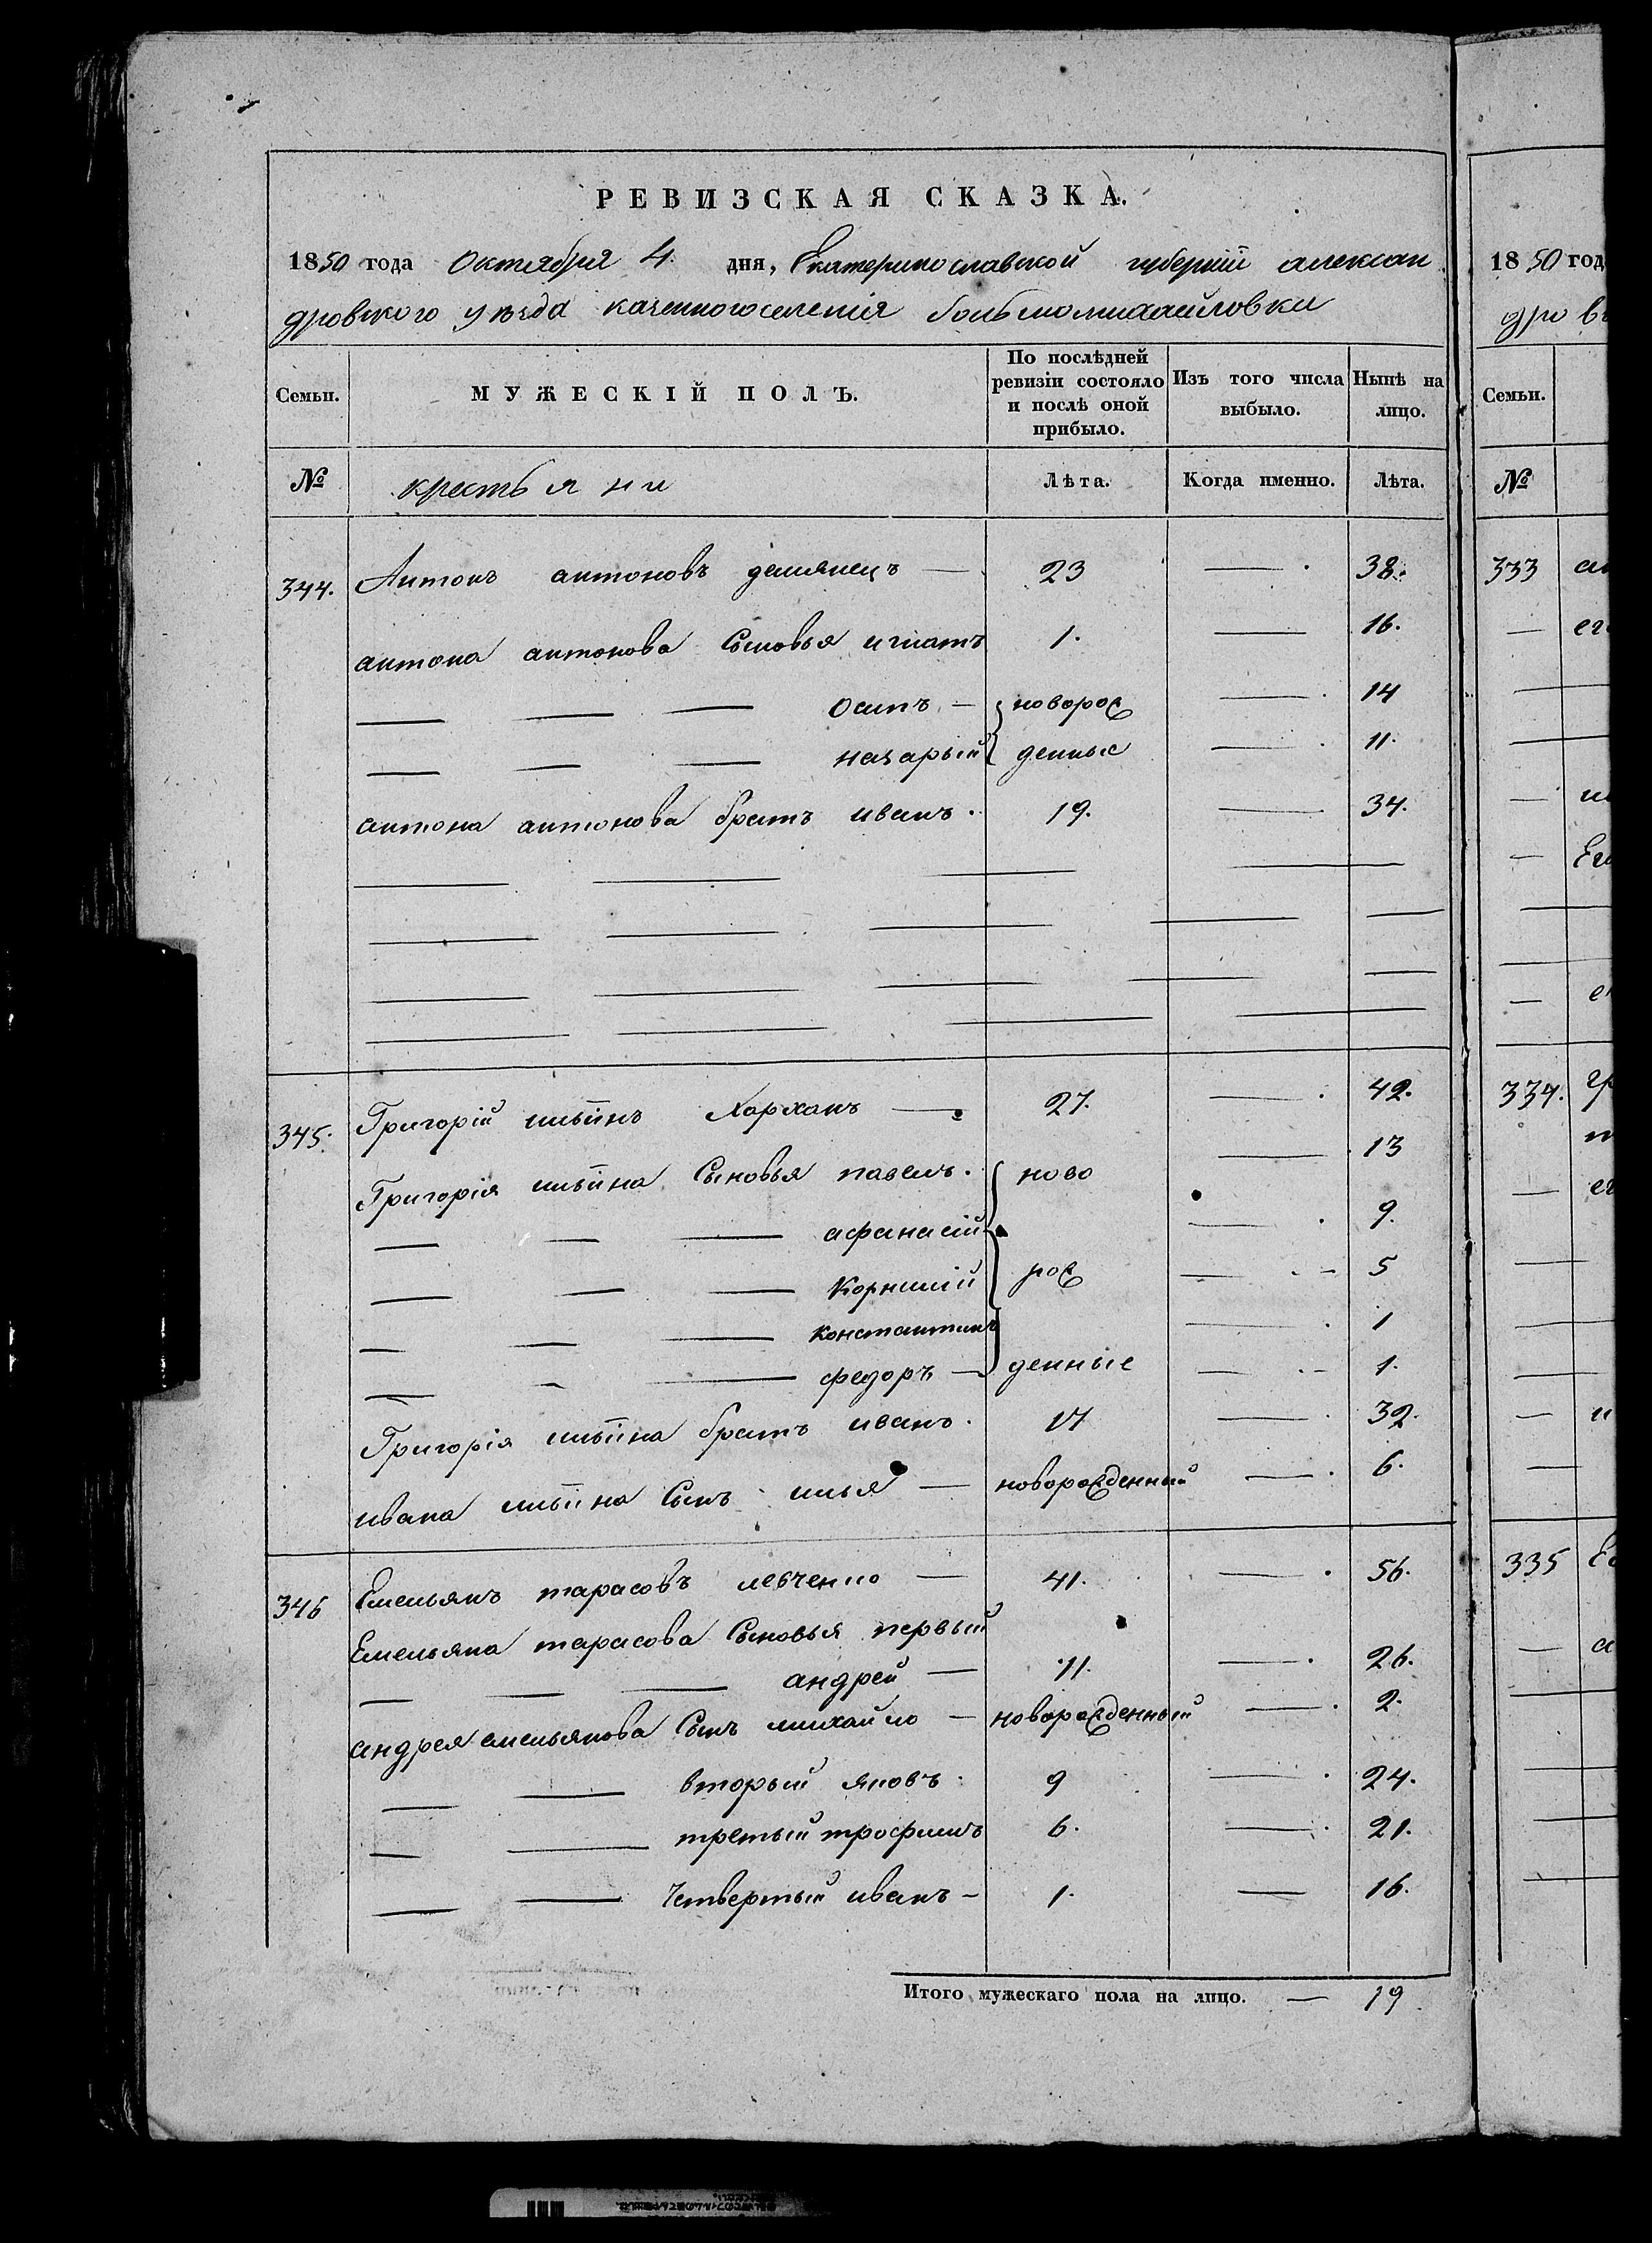 РЕВИЗСКАЯ СКАЗКА.
1850 года Октября 4 дня, Екатеринославской губерніи алексан
дровского уѣзда казенного селенія большомихайловки
Семьи. МУЖЕСКІЙ ПОЛЪ. По послѣдней ревизіи состояло и послѣ оной прибыло. Изъ того числа выбыло. Нынѣ на лицо.
№ крестьяни Лѣта. Когда именно. Лѣта.
344. Антонъ антоновъ демянецъ — 23 — 38.
антона антонова Сыновья игнатъ 1. — 16.
— — — Осипъ — новорож — 14
— — — назарый денные — 11.
антона антонова братъ иванъ. 19. — 34.
345. Григорій ильинъ Харханъ — 27. — 42.
Григорія ильина Сыновья павелъ. ново — 13
— — — афанасій — 9.
— — — Корнилій рож — 5
— — — константинъ — 1
— — — федоръ — денные — 1.
Григорія ильина братъ иванъ. 17 — 32.
ивана ильина Сынъ илья — новорожденный — 6.
346 Емельянъ тарасовъ левченко — 41. — 56.
Емельяна тарасова Сыновья первый
— — — андрей — 11. — 26.
андрея емельянова Сынъ михайло — новорожденный — 2.
— — вторый яковъ. 9 — 24.
— — третьый трофимъ 6. — 21.
— — Четвертый иванъ — 1. — 16.
Итого мужескаго пола на лицо. — 19
1850 год
дров
Семьи.
№
333
334.
335